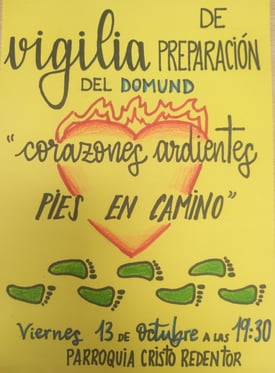 vigilia DE
PREPARACIÓN
DEL DOMUND
"corazones ardientes
PIES EN CAMINO"
Viernes 13 DE Octubre A LAS 19:30
PARROQUIA CRISTO REDENTOR